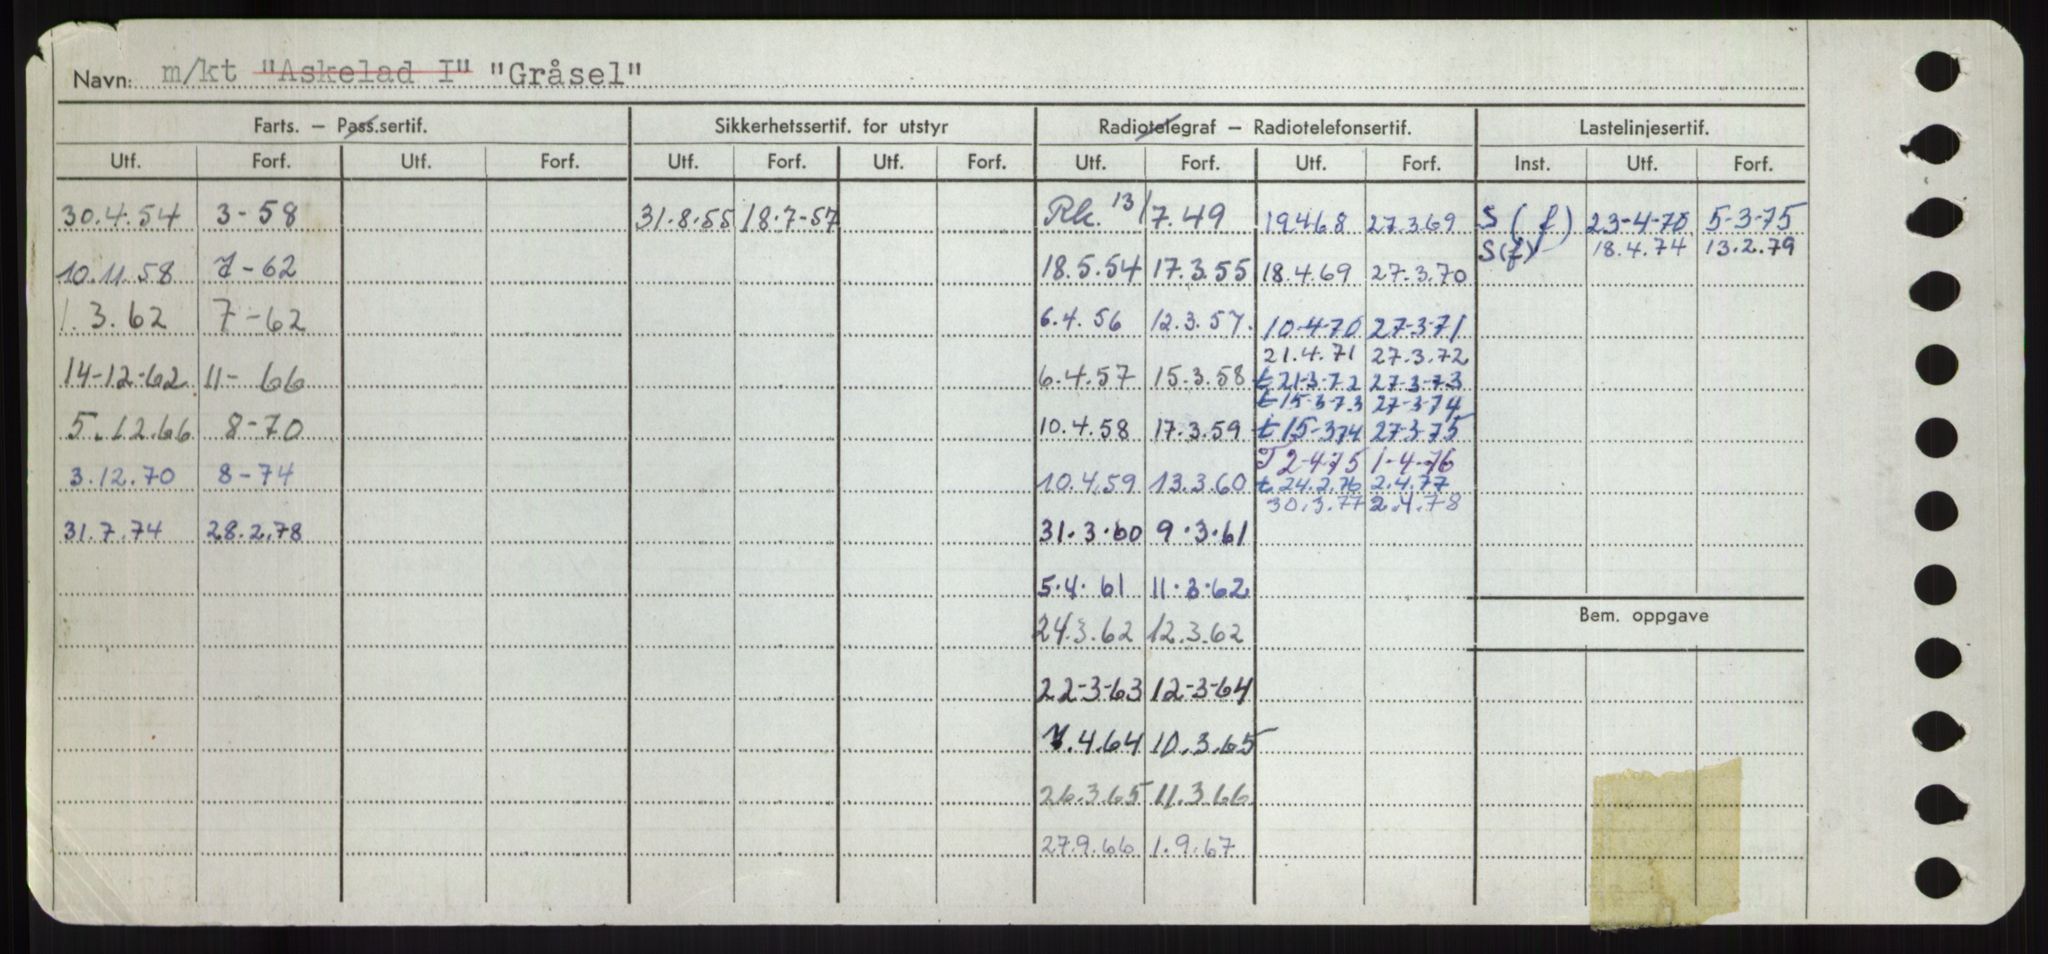 Navn: m/kt "Askelad I" "Gråsel"
Farts. – Pass.sertif. Sikkerhetssertif. for utstyr Radiotelegraf – Radiotelefonsertif. Lastelinjesertif.
Utf. Forf. Utf. Forf. Utf. Forf. Utf. Forf. Utf. Forf. Utf. Forf. Inst. Utf. Forf.
30.4.54 3-58 31.8.55 18.7-57 Rk. 13/7.49 19.4.68 27.3.69 S (f) 23-4-70 5-3-75
S(f) 18.4.74 13.2.79
10.11.58 7-62 18.5.54 17.3.55 18.4.69 27.3.70
1.3.62 7-62 6.4.56 12.3.57. 10-4-70 27-3-71
21.4.71 27.3.72
14-12-62 11-66 6.4.57 15.3.58 t 21-3-72 27-3-73
t 15-3-73 27-3-74
5.12.66 8-70 10.4.58 17.3.59 t 15-3-74 27-3-75
T 2-4-75 1-4-76
3.12.70 8-74 10.4.59 13.3.60 t 24.2.76 2.4.77
30.3.77 2.4.78
31.7.74 28.2.78 31.3.60 9.3.61
5.4.61 11.3.62
Bem. oppgave
24.3.62 12.3.62
22-3-63 12-3-64
7.4.64 10.3.65
26.3.65 11.3.66
27.9.66 1.9.67